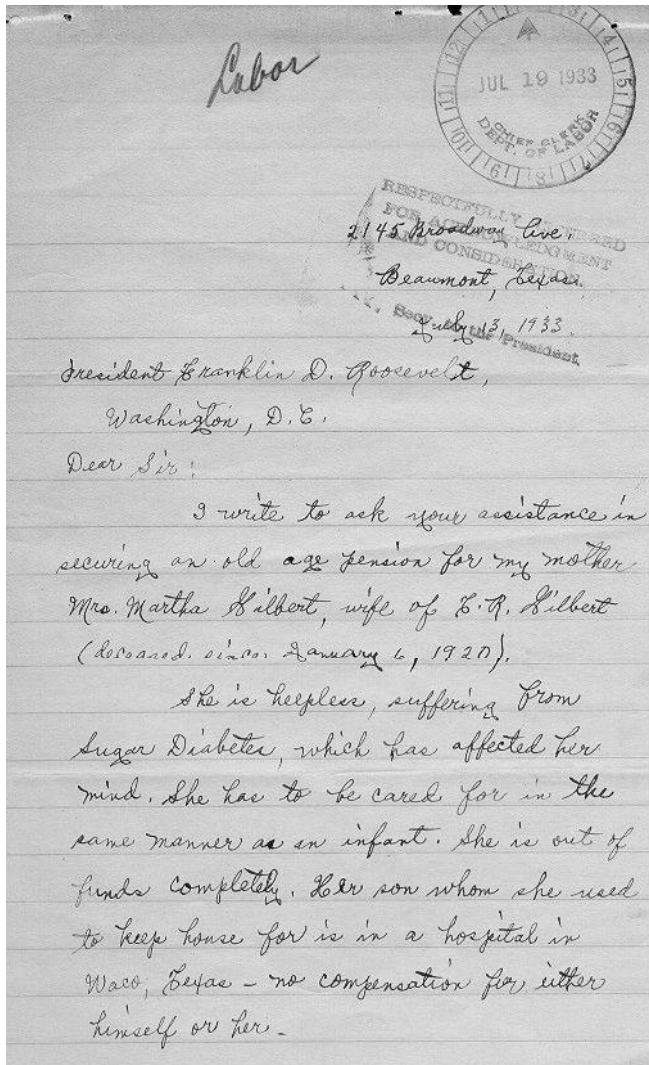 Labor
JUL 19 1933
CHIEF CLERK
DEPT. OF LABOR
RESPECTFULLY
FOR ACKNOWLEDGMENT
AND CONSIDERATION
Secy. to the President
2145 Broadway Ave.
Beaumont, Texas.
July 13, 1933.
President Franklin D. Roosevelt,
Washington, D.C.
Dear Sir:
I write to ask your assistance in
securing an old age pension for my mother
Mrs. Martha Gilbert, wife of F. R. Gilbert
(deceased since January 6, 1920).
She is helpless, suffering from
Sugar Diabetes, which has affected her
mind. She has to be cared for in the
same manner as an infant. She is out of
funds completely. Her son whom she used
to keep house for is in a hospital in
Waco, Texas – no compensation for either
himself or her.